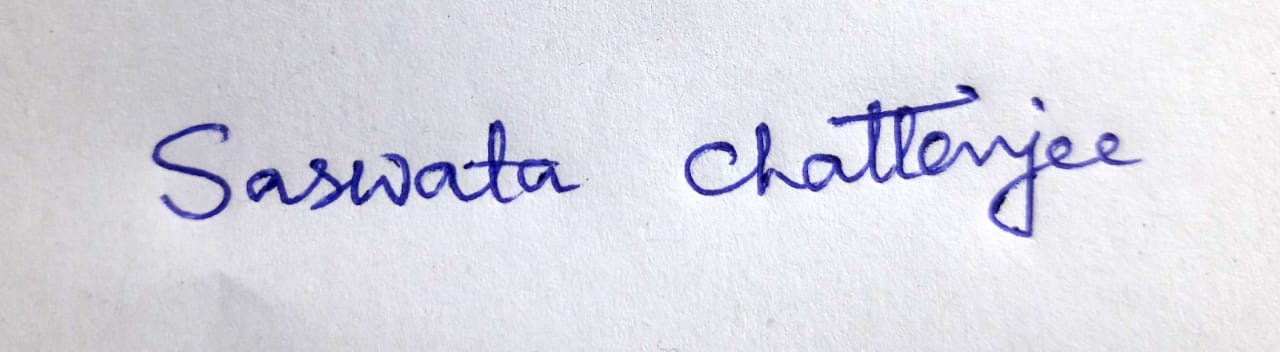 Saswata Chatterjee